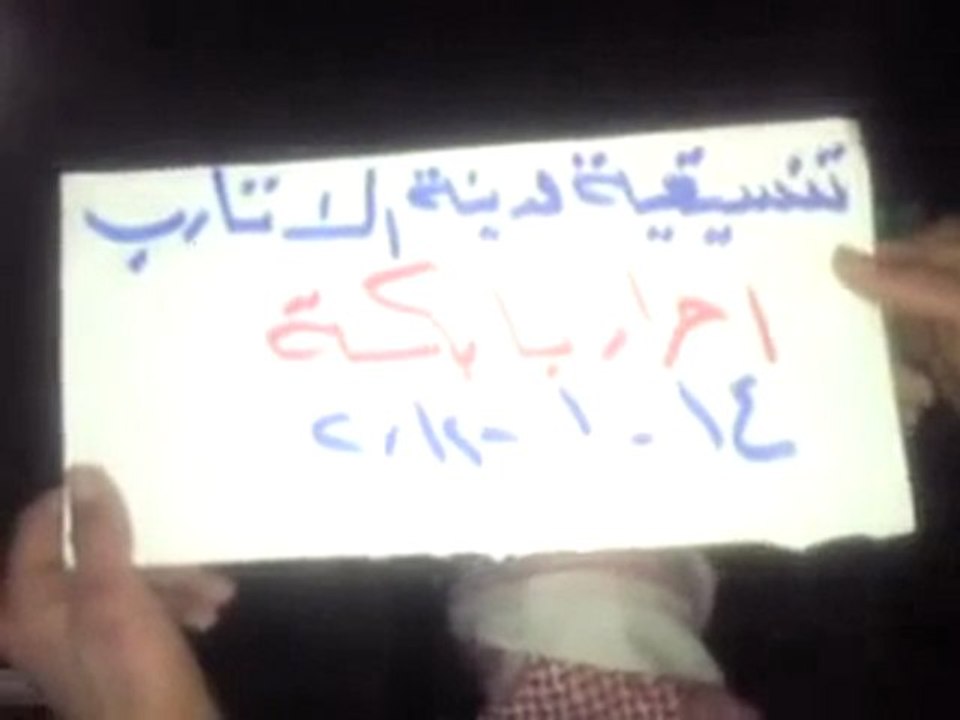 تنسيقية مدينة الاتارب
احرار بابكة
١٤ - ١ - ٢٠١٢